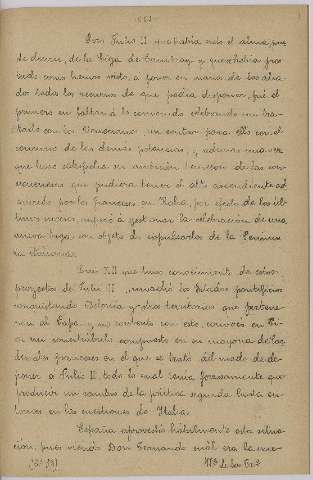 Don Julio II que había sido el alma, pue-
de decirse, de la Liga de Cambray y que había pro-
curado como hemos visto, a poner en manos de los alia-
dos todos los recursos de que podía disponer, fué el
primero en faltar a lo convenido celebrando un tra-
tado con los Venecianos, sin contar para ello con el
concurso de las demás potencias, y además una vez
que hubo satisfecho su ambición, temeroso de las con-
secuencias que pudiera tener el alto ascendiente ad-
quirido por los franceses en Italia, por efecto de los úl-
timos sucesos, empezó a gestionar la celebración de una
nueva liga con objeto de expulsarlos de la Penínsu-
la Italiana.
Luis XII que tuvo conocimiento de estos
proyectos de Julio II, invadió los Estados pontificios
conquistando Bolonia y otros territorios que pertene-
cían al Papa, y no contento con esto, convocó en Pi-
sa un conciliábulo compuesto en su mayoría de Car-
denales franceses en el que se trató del modo de de-
poner a Julio II, todo lo cual tenía forzosamente que
producir un cambio de la política seguida hasta en-
tonces en las cuestiones de Italia.
España aprovechó hábilmente esta situa-
ción, pues viendo Don Fernando cuál era la